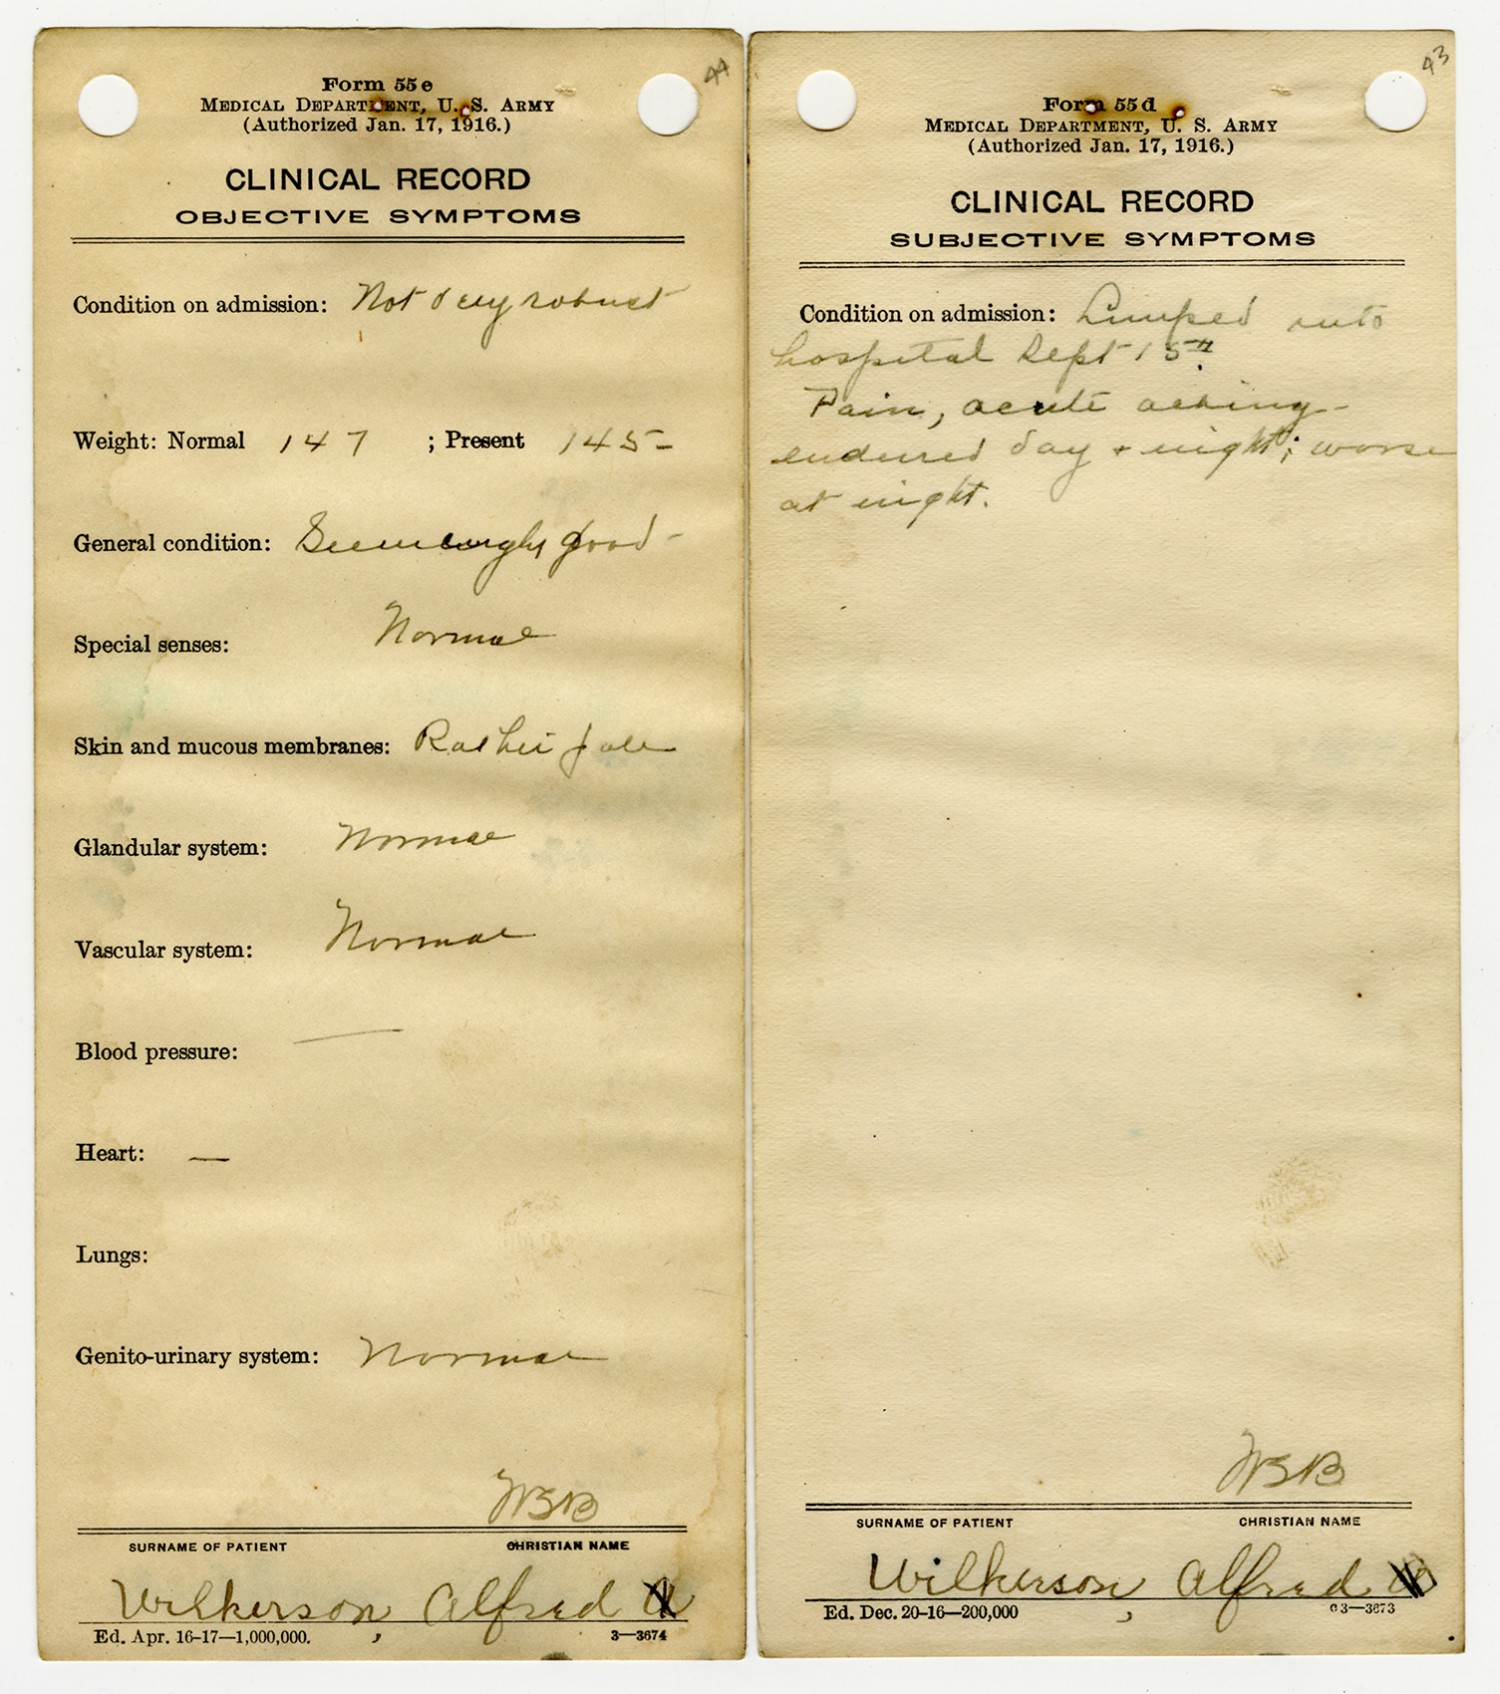 44
Form 55 e
MEDICAL DEPARTMENT, U. S. ARMY
(Authorized Jan. 17, 1916.)
CLINICAL RECORD
OBJECTIVE SYMPTOMS
Condition on admission: Not very robust
Weight: Normal 147 ; Present 145-
General condition: Seemingly good -
Special senses: Normal
Skin and mucous membranes: Rather pale
Glandular system: Normal
Vascular system: Normal
Blood pressure: —
Heart: —
Lungs:
Genito-urinary system: Normal
WBB
SURNAME OF PATIENT CHRISTIAN NAME
Wilkerson, Alfred
Ed. Apr. 16-17—1,000,000. 3—3674
43
Form 55 d
MEDICAL DEPARTMENT, U. S. ARMY
(Authorized Jan. 17, 1916.)
CLINICAL RECORD
SUBJECTIVE SYMPTOMS
Condition on admission: Limped into
hospital Sept 15th.
Pain, acute aching-
endured day + night; worse
at night.
WBB
SURNAME OF PATIENT CHRISTIAN NAME
Wilkerson, Alfred
Ed. Dec. 20-16—200,000 3—3673